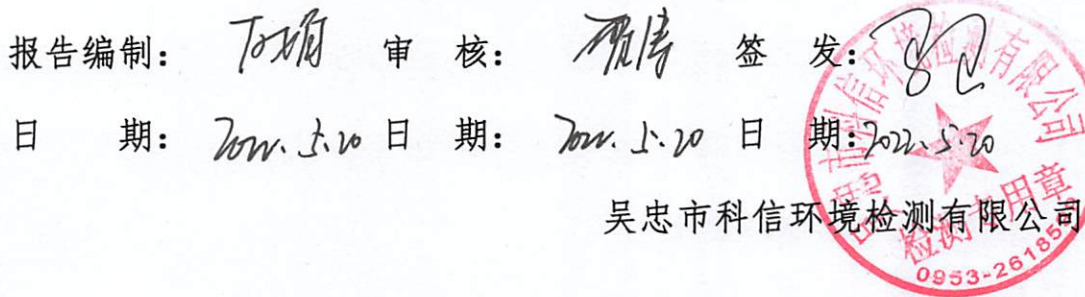 报告编制： 审 核： 贾涛 签 发：
日 期： 2022.5.20 日 期： 2022.5.20 日 期：2022.5.20
吴忠市科信环境检测有限公司
吴忠市科信环境检测有限公司
检测专用章
0953-261855